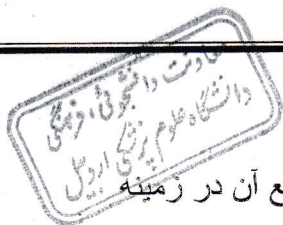 معاونت دانشجوئی، فرهنگی
دانشگاه علوم پزشکی اردبیل
ع آن در زمینه